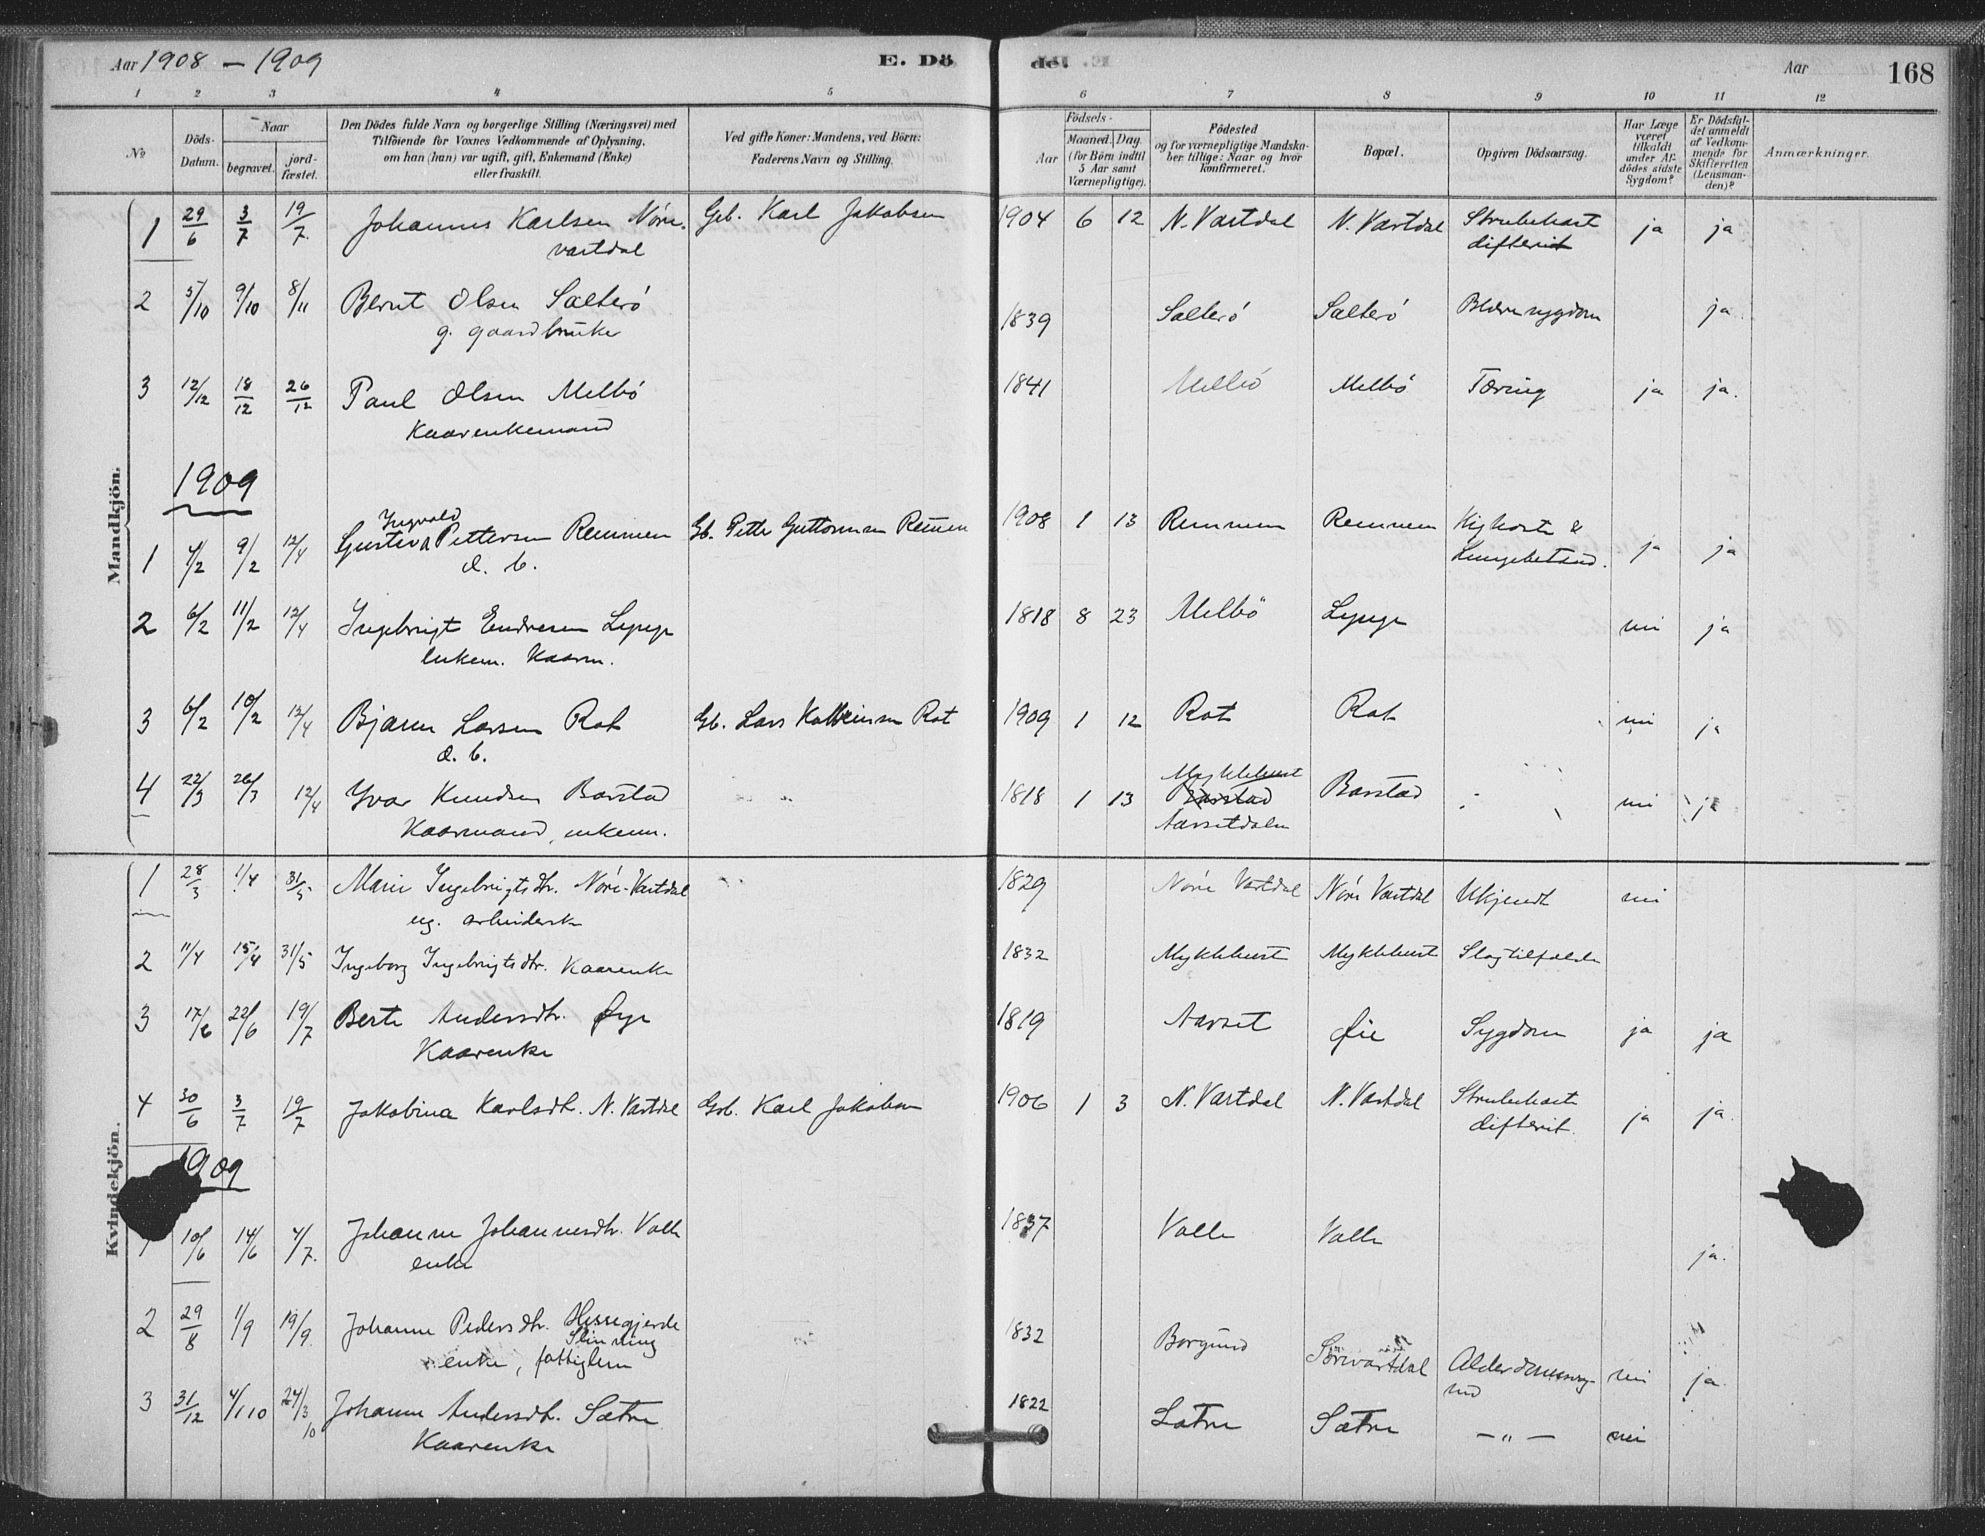 Aar 1908 – 1909 E. Dö de. Aar 168
1 2 3 4 5 6 7 8 9 10 11 12
No Döds-Datum. Naar begravet. jord-fæstet. Den Dödes fulde Navn og borgerlige Stilling (Næringsvei) med Tilföiende for Voxnes Vedkommende af Oplysning, om han (hun) var ugift, gift, Enkemand (Enke) eller fraskilt. Ved gifte Koner: Mandens, ved Börn: Faderens Navn og Stilling. Aar Födsels- Maaned. Dag. (for Börn indtil 5 Aar samt Værnepligtige). Födested og for værnepligtige Mandskaber tillige: Naar og hvor konfirmeret. Bopæl. Opgiven Dödsaarsag. Har Læge været tilkaldt under Afdödes sidste Sygdom? Er Dödsfaldet anmeldt af Vedkommende for Skifteretten (Lensmanden)? Anmærkninger.
Mandkjön.
1 29/6 3/7 19/7 Johannes Karlsen Nörevartdal Gb. Karl Jakobsen 1904 6 12 N. Vartdal N. Vartdal Strubehoste difterit ja ja
2 5/10 9/10 8/11 Bernt Olsen Sælterö 1839 Sælterö Sælterö Blæresygdom ja
g. gaardbruker
3 12/12 18/12 26/12 Paul Olsen Melbö 1841 Melbö Melbö Tæring ja ja.
Kaarenkemand
1909
1 4/2 9/2 12/4 Gustav Ingvald Pettersen Remmen Gb. Petter Guttormsen Remmen 1908 1 13 Remmen Remmen Kighoste & Lungebetænd. ja ja
d. b.
2 6/2 11/2 12/4 Ingebrigt Endresen Lynge 1818 8 23 Melbö Lynge nei ja
enkem. Kaarm.
3 6/2 10/2 12/4 Bjarne Larsen Rot Gb. Lars Rot 1909 1 12 Rot Rot nei ja
d. b.
4 22/3 26/3 12/4 Yvar Knudsen Barstad 1818 1 13 Myklebust Barstad Aarsetdalen Barstad nei ja
Kaarmand, enkem.
Kvindekjön.
1 28/3 1/4 31/5 Marie Ingebrigtsdtr. Nöre-Vartdal 1829 Nöre Vartdal Nöre Vartdal Ukjendt nei
ug. arbeiderske
2 11/4 15/4 31/5 Ingeborg Ingebrigtsdtr. Kaarenke 1832 Myklebust Myklebust Slagtilfælde
3 17/6 22/6 19/7 Berte Andersdtr. Øye 1819 Aarset Øie Sygdom ja ja
Kaarenke
4 30/6 3/7 19/7 Jakobina Karlsdtr. N. Vartdal Gb. Karl Jakobsen 1906 1 3 N. Vartdal N. Vartdal Strubehoste difterit. ja ja.
1909
1 10/6 14/6 4/7. Johanne Johannesdtr. Valle 1837 Valle Valle ja.
enke
2 29/8 1/9 19/9. Johanne Pedersdtr. Hessegjerde Slinning 1832 Borgund Sörevartdal Alderdomssvaghed nei ja
enke, fattiglem
3 31/12 4/1 10 24/3 10 Johanne Andersdtr. Sætre 1822 Sætre Sætre — „ — nei
Kaarenke